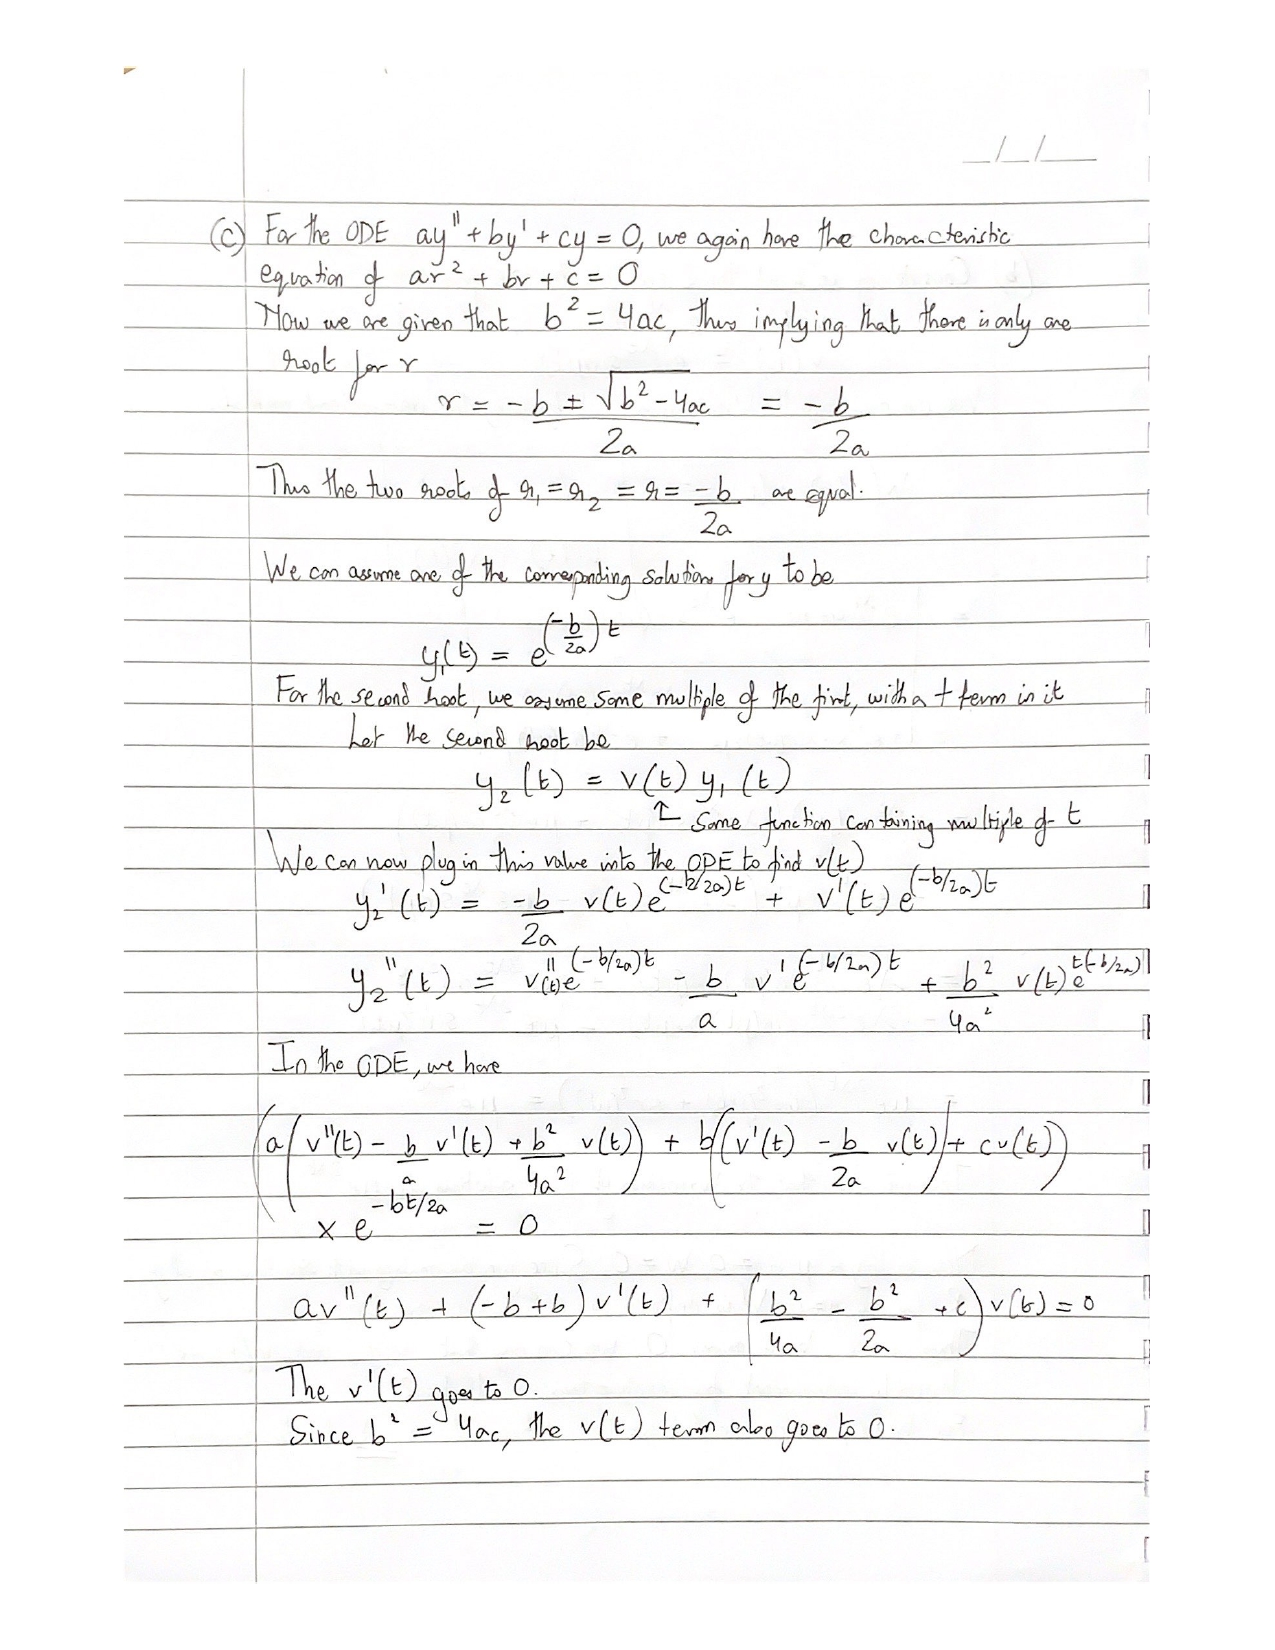 _/_/___
(c) For the ODE ay'' + by' + cy = 0, we again have the characteristic
equation of ar² + br + c = 0
Now we are given that b² = 4ac, thus implying that there is only one
root for r
r = (-b ± √(b² - 4ac))/2a = -b/2a
Thus the two roots of r₁ = r₂ = r = -b/2a are equal.
We can assume one of the corresponding solutions for y to be
y₁(t) = e^((-b/2a)t)
For the second root, we assume some multiple of the first, with a t term in it
Let the second root be
y₂(t) = v(t) y₁(t)
↑ Some function containing multiple of t
We can now plug in this value into the ODE to find v(t)
y₂'(t) = -b/2a v(t) e^((-b/2a)t) + v'(t) e^((-b/2a)t)
y₂''(t) = v''(t) e^((-b/2a)t) - b/a v' e^((-b/2a)t) + b²/4a² v(t) e^(t(-b/2a))
In the ODE, we have
(a(v''(t) - b/a v'(t) + b²/4a² v(t)) + b((v'(t) - b/2a v(t)) + cv(t))
× e^(-bt/2a) = 0
av''(t) + (-b+b) v'(t) + (b²/4a - b²/2a + c) v(t) = 0
The v'(t) goes to 0.
Since b² = 4ac, the v(t) term also goes to 0.